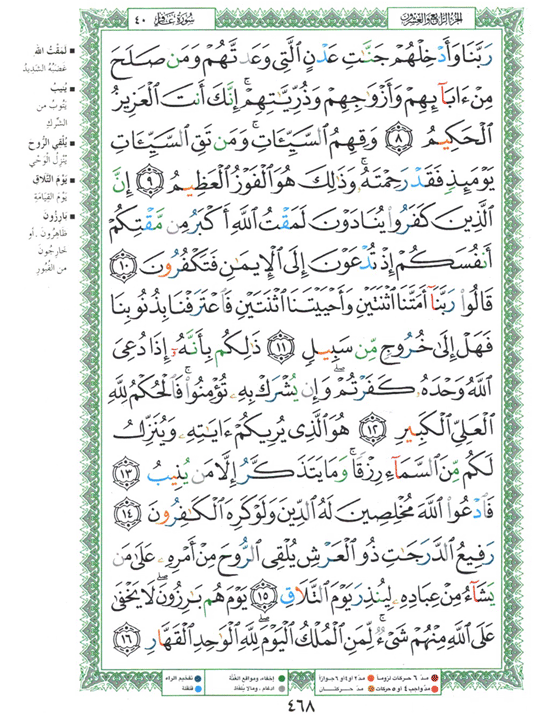 الجزء الرابع والعشرون
سُورَةُ غَافِر ٤٠
رَبَّنَا وَأَدْخِلْهُمْ جَنَّٰتِ عَدْنٍ ٱلَّتِى وَعَدتَّهُمْ وَمَن صَلَحَ
مِنْ ءَابَآئِهِمْ وَأَزْوَٰجِهِمْ وَذُرِّيَّٰتِهِمْ ۚ إِنَّكَ أَنتَ ٱلْعَزِيزُ
ٱلْحَكِيمُ ٨ وَقِهِمُ ٱلسَّيِّـَٔاتِ ۚ وَمَن تَقِ ٱلسَّيِّـَٔاتِ
يَوْمَئِذٍ فَقَدْ رَحِمْتَهُۥ ۚ وَذَٰلِكَ هُوَ ٱلْفَوْزُ ٱلْعَظِيمُ ٩ إِنَّ
ٱلَّذِينَ كَفَرُوا۟ يُنَادَوْنَ لَمَقْتُ ٱللَّهِ أَكْبَرُ مِن مَّقْتِكُمْ
أَنفُسَكُمْ إِذْ تُدْعَوْنَ إِلَى ٱلْإِيمَٰنِ فَتَكْفُرُونَ ١٠
قَالُوا۟ رَبَّنَآ أَمَتَّنَا ٱثْنَتَيْنِ وَأَحْيَيْتَنَا ٱثْنَتَيْنِ فَٱعْتَرَفْنَا بِذُنُوبِنَا
فَهَلْ إِلَىٰ خُرُوجٍ مِّن سَبِيلٍ ١١ ذَٰلِكُم بِأَنَّهُۥٓ إِذَا دُعِىَ
ٱللَّهُ وَحْدَهُۥ كَفَرْتُمْ ۖ وَإِن يُشْرَكْ بِهِۦ تُؤْمِنُوا۟ ۚ فَٱلْحُكْمُ لِلَّهِ
ٱلْعَلِىِّ ٱلْكَبِيرِ ١٢ هُوَ ٱلَّذِى يُرِيكُمْ ءَايَٰتِهِۦ وَيُنَزِّلُ
لَكُم مِّنَ ٱلسَّمَآءِ رِزْقًا ۚ وَمَا يَتَذَكَّرُ إِلَّا مَن يُنِيبُ ١٣
فَٱدْعُوا۟ ٱللَّهَ مُخْلِصِينَ لَهُ ٱلدِّينَ وَلَوْ كَرِهَ ٱلْكَٰفِرُونَ ١٤
رَفِيعُ ٱلدَّرَجَٰتِ ذُو ٱلْعَرْشِ يُلْقِى ٱلرُّوحَ مِنْ أَمْرِهِۦ عَلَىٰ مَن
يَشَآءُ مِنْ عِبَادِهِۦ لِيُنذِرَ يَوْمَ ٱلتَّلَاقِ ١٥ يَوْمَ هُم بَٰرِزُونَ ۖ لَا يَخْفَىٰ
عَلَى ٱللَّهِ مِنْهُمْ شَىْءٌ ۚ لِّمَنِ ٱلْمُلْكُ ٱلْيَوْمَ ۖ لِلَّهِ ٱلْوَٰحِدِ ٱلْقَهَّارِ ١٦
لَمَقْتُ الله
غَضَبُهُ الشديد
يُنِيبُ
يَتُوبُ من
الشّركِ
يُلْقِي الرُّوح
يُنْزِلُ الوَحْيَ
يَوْمَ التّلاقِ
يَوْمَ القِيَامَةِ
بَارِزُون
ظاهِرُون . أو
خارِجُونَ
من القُبُورِ
مدّ ٦ حركات لزوماً مدّ ٢ أو ٤ أو ٦ جوازاً إخفاء، ومواقع الغُنَّة تفخيم الراء
مدّ واجب ٤ أو ٥ حركات مدّ حركتان إدغام ، وما لا يُلفَظ قلقلة
٤٦٨